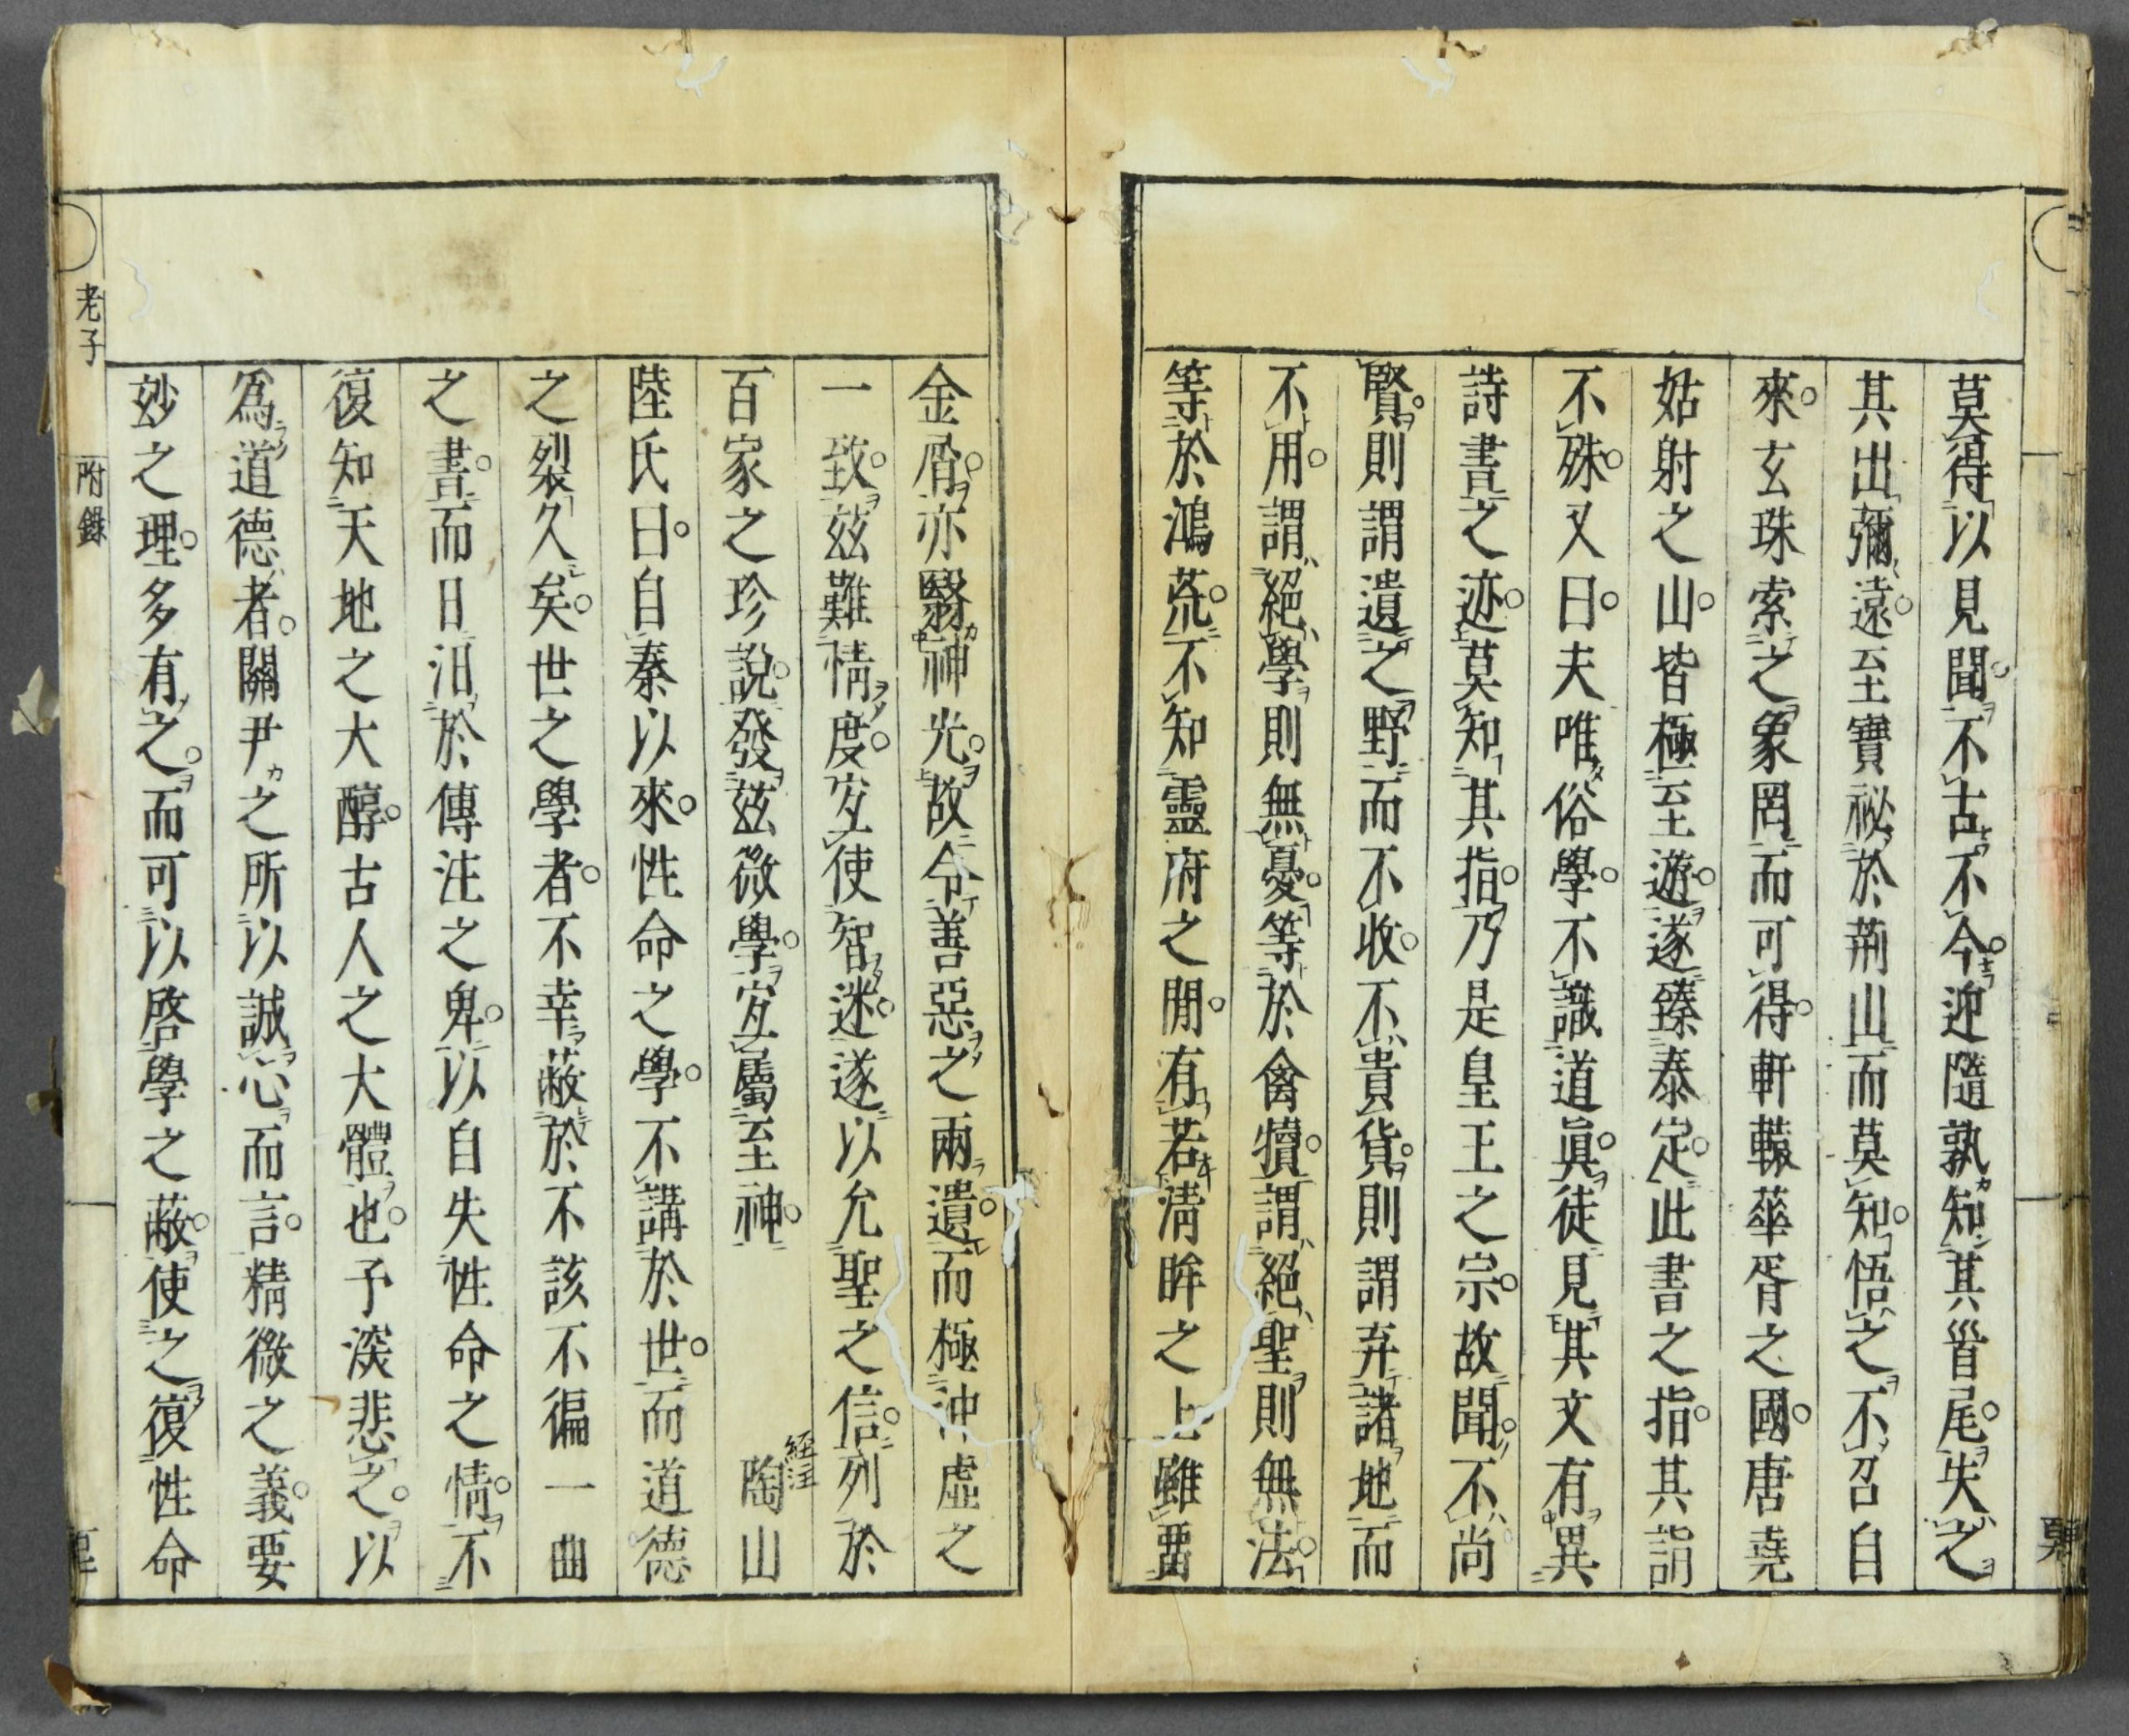 莫得以見聞不古不今迎隨孰知其首尾失之
其出彌遠至寶祕於荊山而莫知悟之不召自
來玄珠索之象罔而可得軒轅華胥之國唐堯
姑射之山皆極至遊遂臻泰定此書之指其詣
不殊又曰夫唯俗學不識道眞徒見其文有異
詩書之迹莫知其指乃是皇王之宗故聞不尚
賢則謂遺之野而不收不貴貨則謂弃諸地而
不用謂絕學則無憂等於禽犢謂絕聖則無法
等於鴻荒不知靈府之閒有若淸眸之上雖
金屑亦翳神光故令善惡之兩遺而極沖虛之
一致茲難情度宐使智迷遂以允聖之信列於
百家之珍說發茲微學宐屬至神 陶山
經注
陸氏曰自秦以來性命之學不講於世而道德
之裂久矣世之學者不幸蔽於不該不徧一曲
之書而日汨於傳注之卑以自失性命之情不
復知天地之大醇古人之大體也予深悲之以
爲道德者關尹之所以誠心而言精微之義要
妙之理多有之而可以啓學之蔽使之復性命
老子 附錄